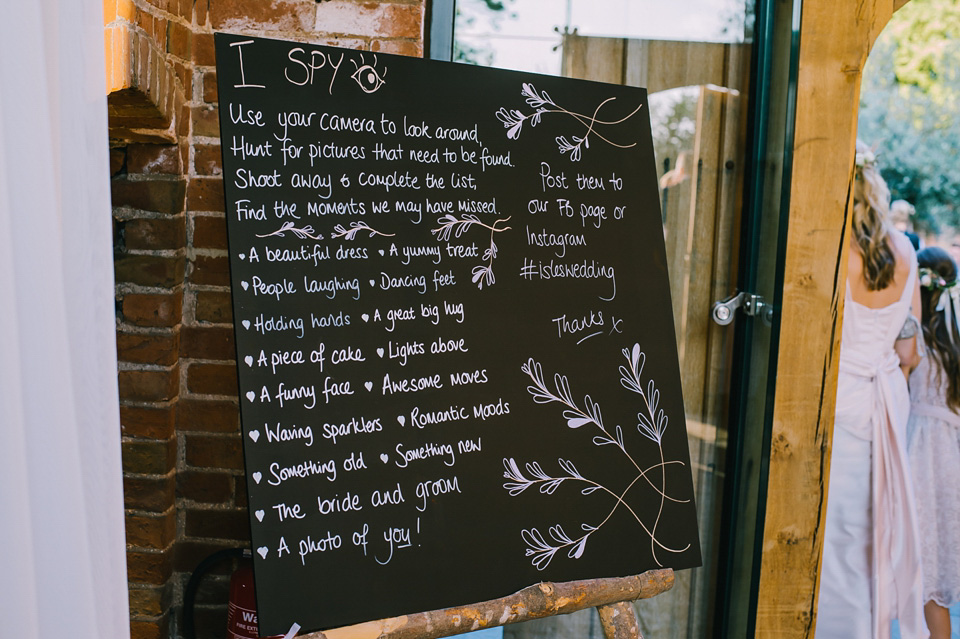 I SPY
Use your camera to look around,
Hunt for pictures that need to be found.
Shoot away & complete the list,
Find the moments we may have missed.
• A beautiful dress • A yummy treat
♥ People laughing • Dancing feet
♥ Holding hands ♥ A great big hug
♥ A piece of cake ♥ Lights above
♥ A funny face ♥ Awesome moves
♥ Waving sparklers ♥ Romantic moods
♥ Something old ♥ Something new
♥ The bride and groom
♥ A photo of you!
Post them to
our FB page or
Instagram
#isleswedding
Thanks x
Wa
FIRE EXT